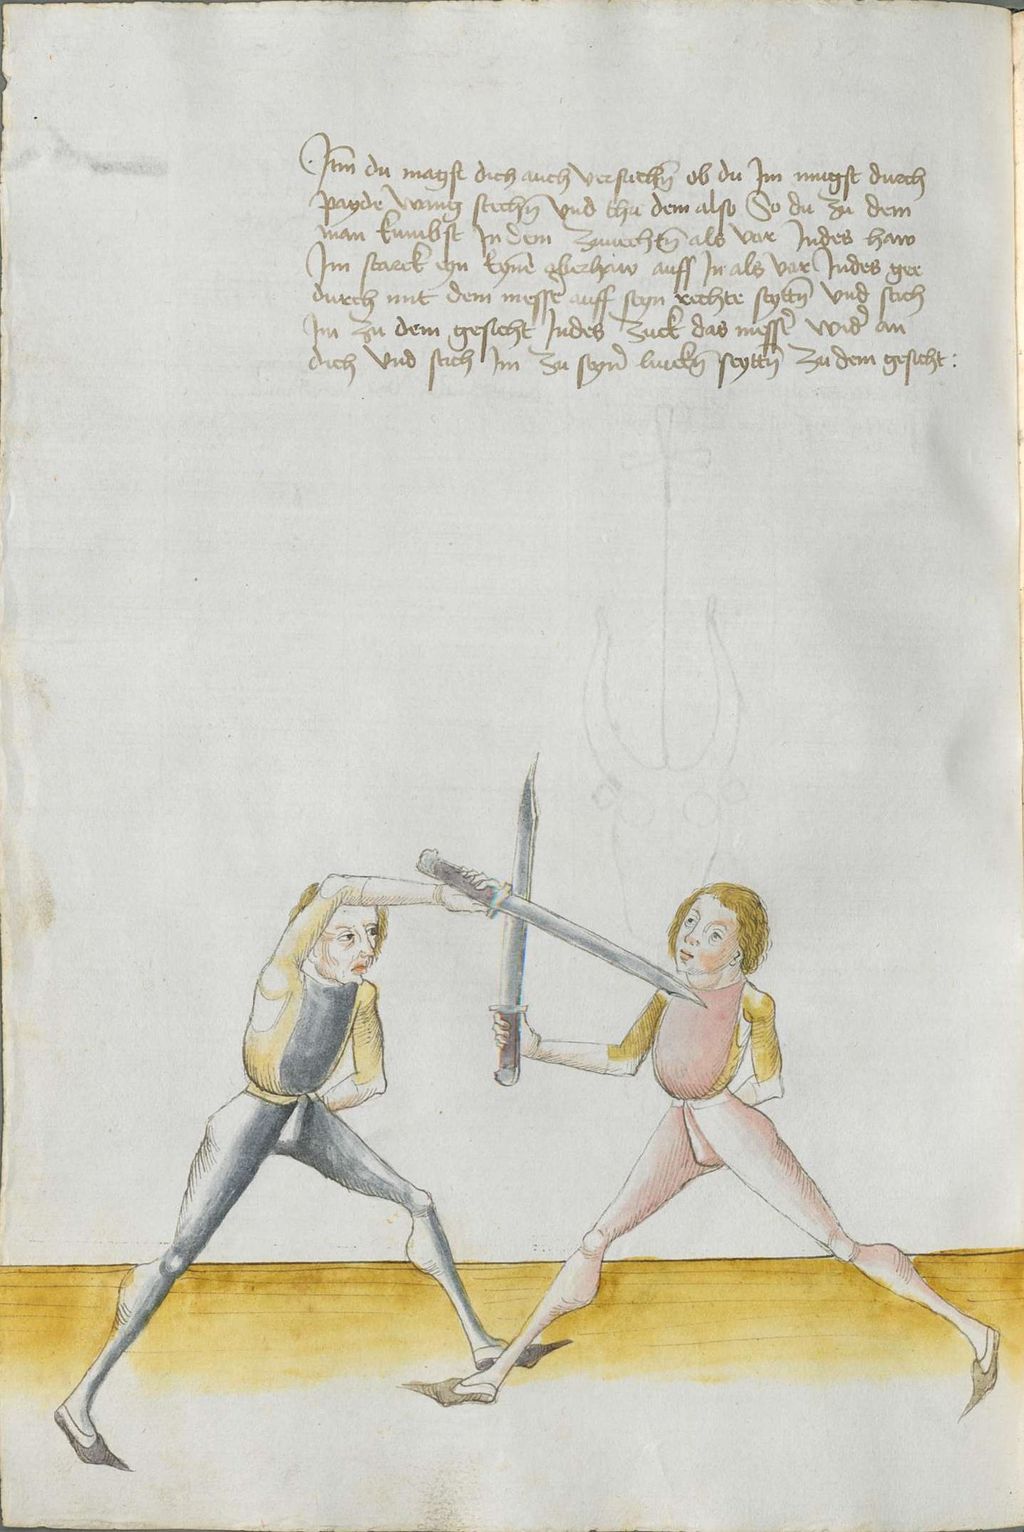 Itm du magst dich auch versuchn̄ ob du Im mugst durch
payde wing stechn̄ vnd thu dem also So du zu dem
man kumbst In dem zuuechtn̄ als vor Indes haw
Im starck eyn kynē oberhaw auff In als vor Indes gee
durch mit dem messer auff seyn rechte seyttn̄ vnd stich
Im zu dem gesicht Indes zuck das messer wider an
dich vnd stich Im zu seynr linckn̄ seyttn̄ zu dem gesicht :